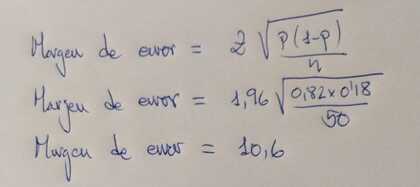 Margen de error = Z √p(1-p)/n
Margen de error = 1,96 √0,82x0'18/50
Margen de error = 10,6